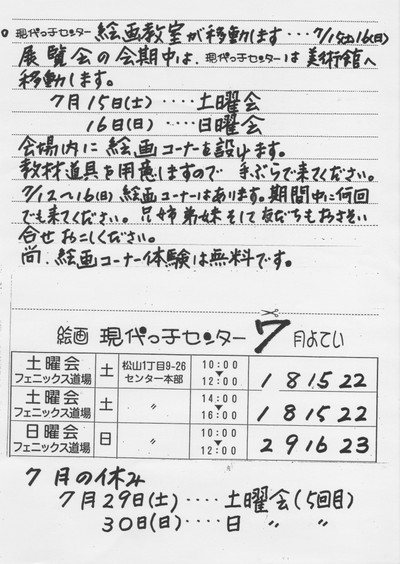 ○ 現代っ子センター 絵画教室が移動します…7/15(土)16(日)
展覧会の会期中は、現代っ子センターは美術館へ
移動します。
7月15日(土)‥‥土曜会
16日(日)‥‥日曜会
会場内に絵画コーナーを設けます。
教材道具を用意しますので 手ぶらで来てください。
7/12〜16(日)絵画コーナーはあります。期間中に何回
でも来てください。兄姉弟妹そして友だちもおさそい
合せおこしください。
尚、絵画コーナー体験は無料です。
絵画 現代っ子センター 7月よてい
土曜会 フェニックス道場 土 松山1丁目9-26 センター本部 10:00 ▼ 12:00 1 8 15 22
土曜会 フェニックス道場 土 〃 14:00 ▼ 16:00 1 8 15 22
日曜会 フェニックス道場 日 〃 10:00 ▼ 12:00 2 9 16 23
7月の休み
7月29日(土)‥‥土曜会(5回目)
30日(日)‥‥日 〃 〃